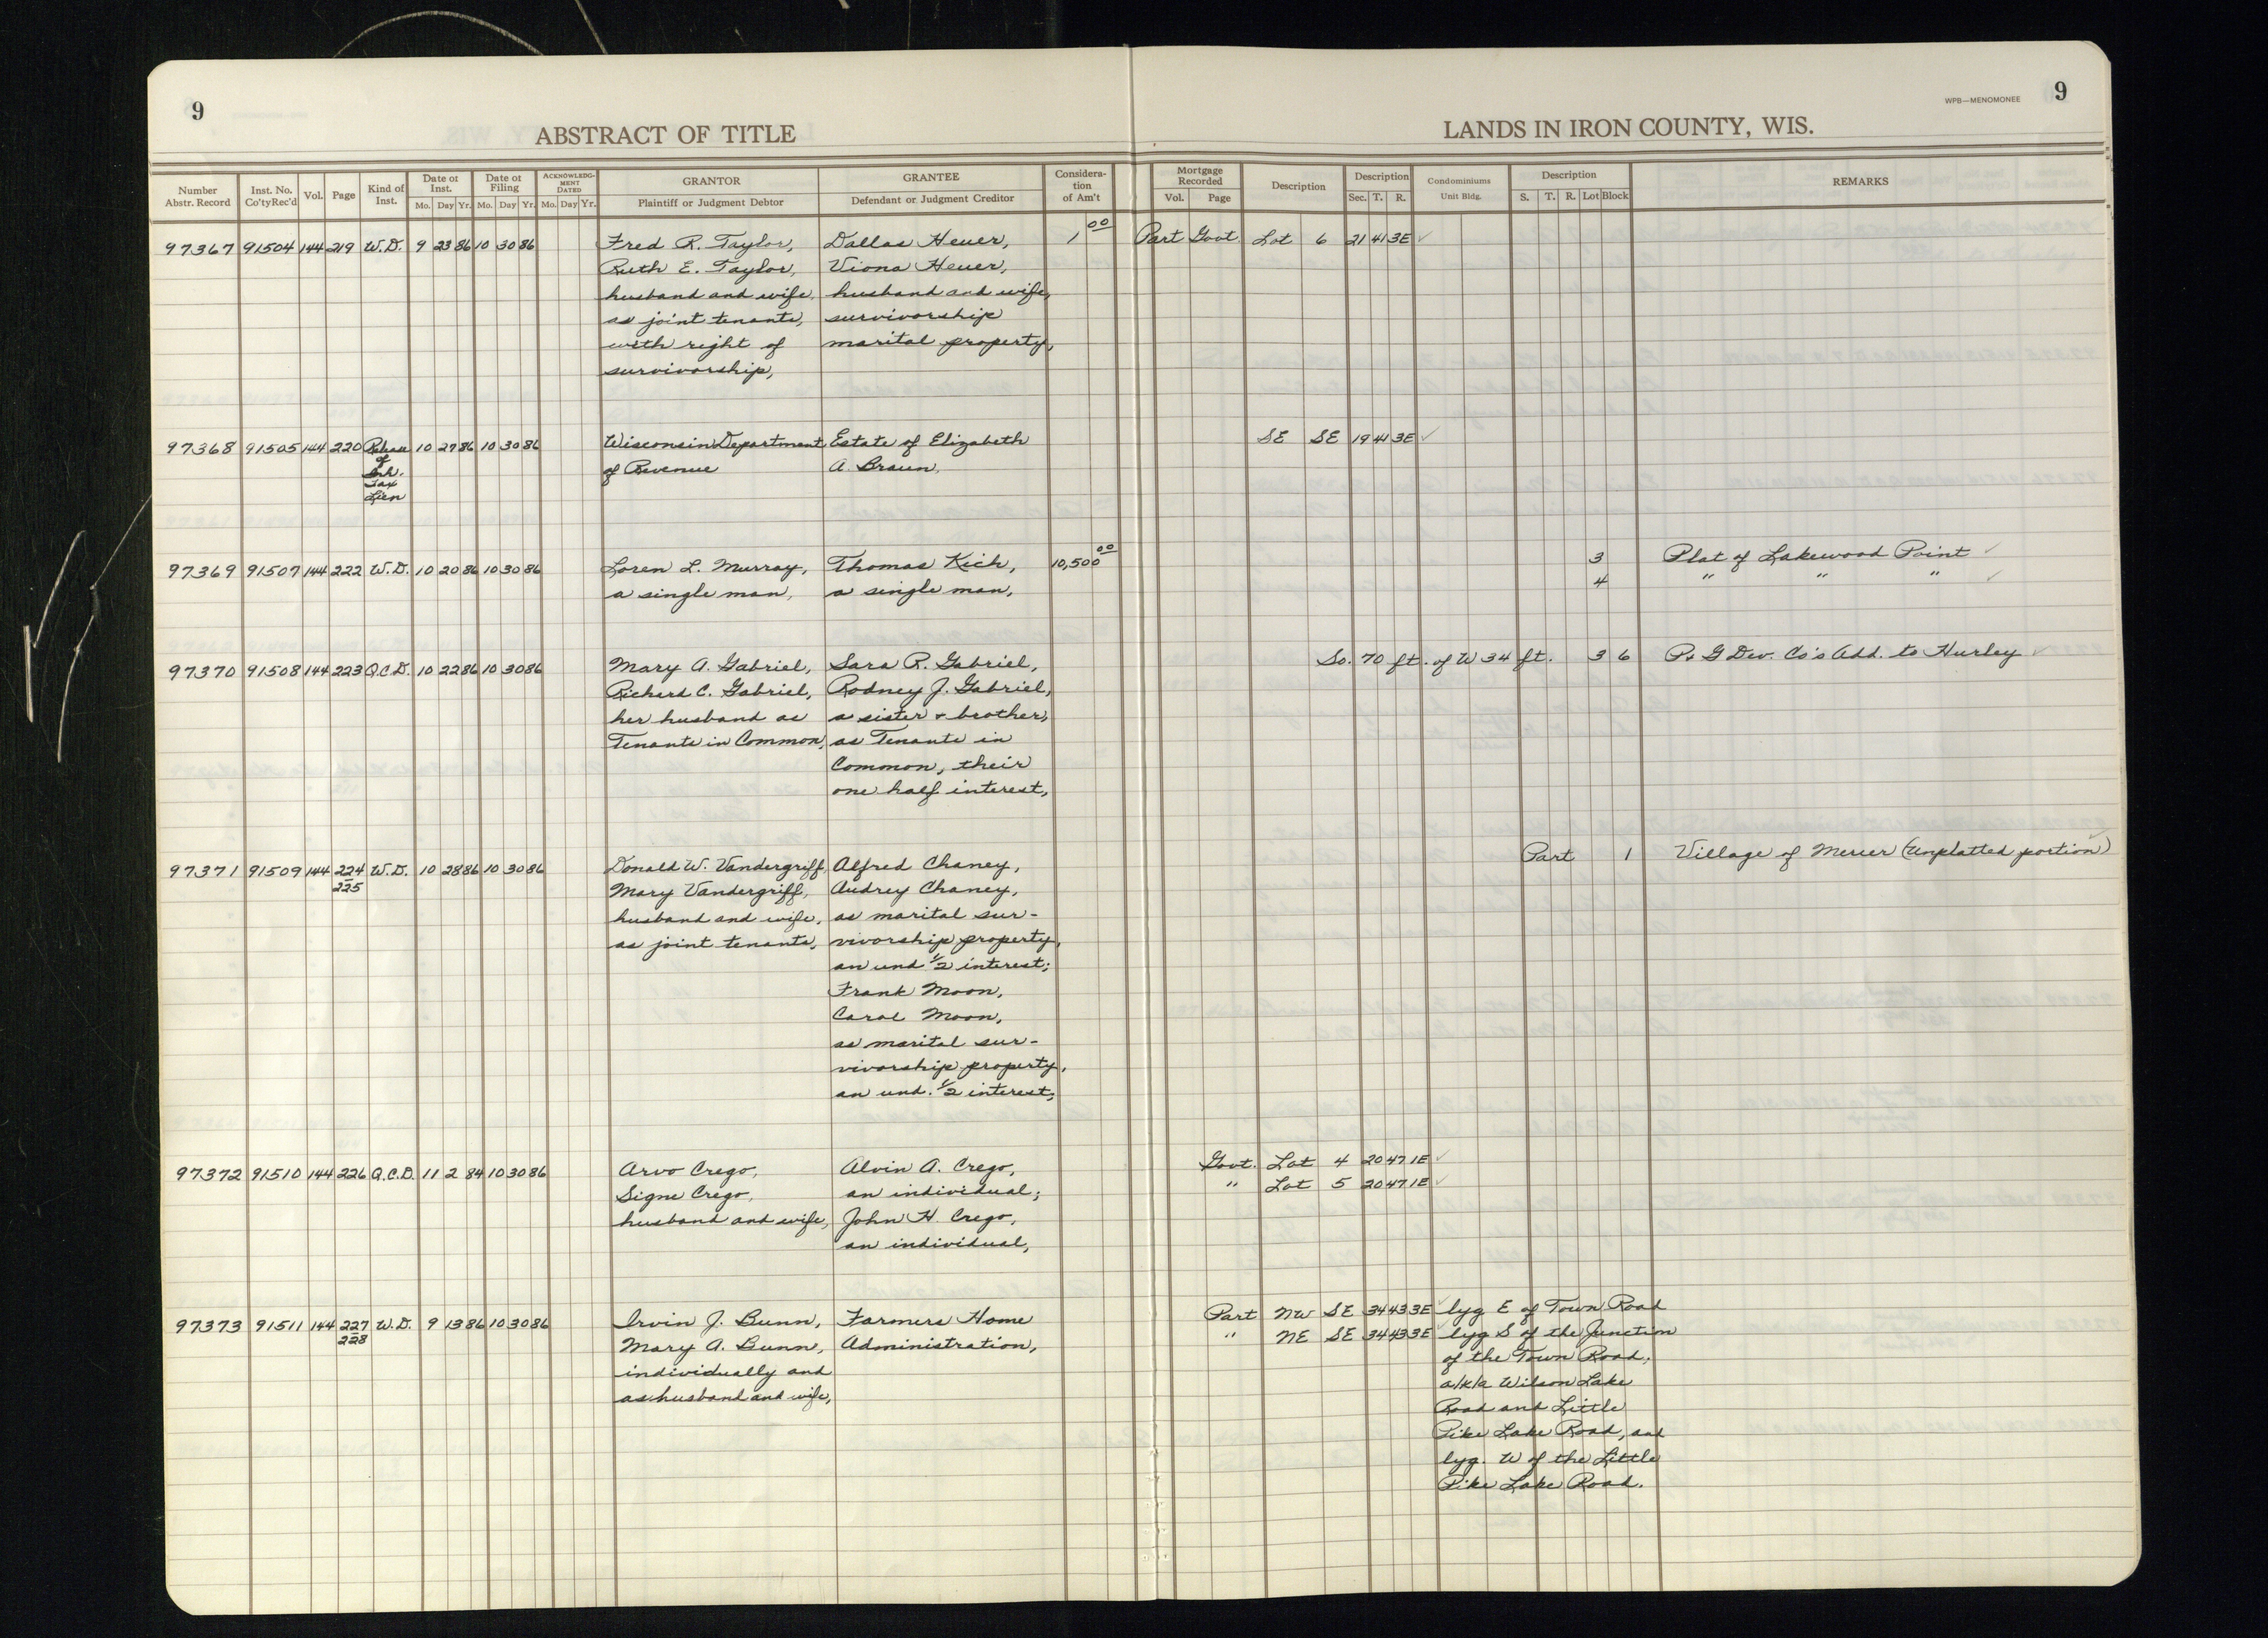 9
ABSTRACT OF TITLE
LANDS IN IRON COUNTY, WIS.
WPB—MENOMONEE
9
Number Abstr. Record
Inst. No. Co'ty Rec'd
Vol.
Page
Kind of Inst.
Date of Inst. Mo. Day Yr.
Date of Filing Mo. Day Yr.
ACKNOWLEDGMENT DATED Mo. Day Yr.
GRANTOR Plaintiff or Judgment Debtor
GRANTEE Defendant or Judgment Creditor
Consideration of Am't
Mortgage Recorded Vol. Page
Description
Description Sec. T. R.
Condominiums Unit Bldg.
Description S. T. R. Lot Block
REMARKS
97367 91504 144 219 W.D. 9 23 86 10 30 86 Fred R. Taylor, Dallas Heuer, 1 00 Part Govt. Lot 6 21 41 3E ✓
Ruth E. Taylor, Viona Heuer,
husband and wife, husband and wife,
as joint tenants, survivorship
with right of marital property,
survivorship,
97368 91505 144 220 Release 10 27 86 10 30 86 Wisconsin Department Estate of Elizabeth SE SE 19 41 3E ✓
of of Revenue A. Braun,
Inh.
Tax
Lien
97369 91507 144 222 W.D. 10 20 86 10 30 86 Loren L. Murray, Thomas Kich, 10,500 00 3 Plat of Lakewood Point ✓
a single man, a single man, 4 " " " ✓
97370 91508 144 223 Q.C.D. 10 22 86 10 30 86 Mary A. Gabriel, Sara R. Gabriel, So. 70 ft. of W 34 ft. 3 6 P & G Dev. Co's Add. to Hurley ✓
Richard C. Gabriel, Rodney J. Gabriel,
her husband as a sister + brother,
Tenants in Common, as Tenants in
Common, their
one half interest,
97371 91509 144 224 W.D. 10 28 86 10 30 86 Donald W. Vandergriff, Alfred Chaney, Part 1 Village of Mercer (Unplatted portion) ✓
225 Mary Vandergriff, Audrey Chaney,
husband and wife, as marital sur-
as joint tenants, vivorship property,
an und 1/2 interest;
Frank Moon,
Carol Moon,
as marital sur-
vivorship property,
an und. 1/2 interest,
97372 91510 144 226 Q.C.D. 11 2 84 10 30 86 Arvo Crego, Alvin A. Crego, Govt. Lot 4 20 47 1E ✓
Signe Crego, an individual; " Lot 5 20 47 1E ✓
husband and wife, John H. Crego,
an individual,
97373 91511 144 227 W.D. 9 13 86 10 30 86 Irvin J. Bunn, Farmers Home Part NW SE 34 43 3E ✓ lyg E of Town Road
228 Mary A. Bunn, Administration, " NE SE 34 43 3E ✓ lyg S of the Junction
individually and of the Town Road,
as husband and wife, a/k/a Wilson Lake
Road and Little
Pike Lake Road, and
lyg. W of the Little
Pike Lake Road.